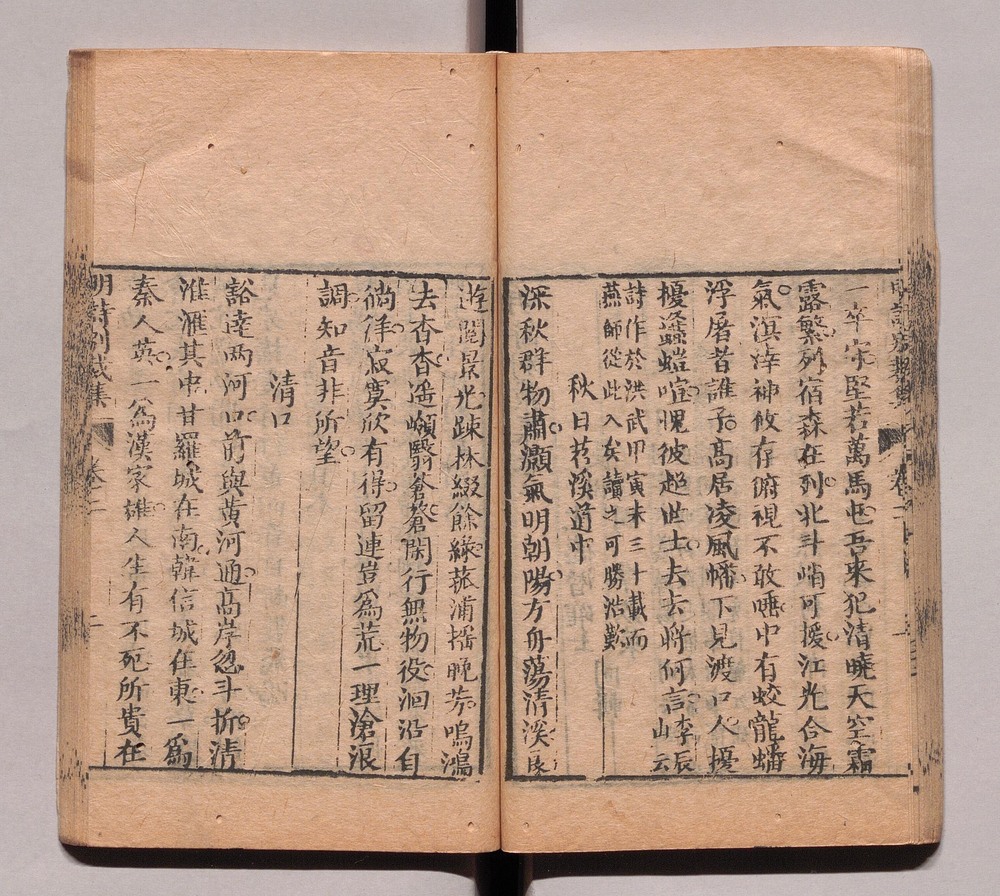 一卒牢堅若萬馬屯吾來犯清曉天空霜
露繁列宿森在列北斗峭可援江光合海
氣溟涬神攸存俯視不敢唾中有蛟龍蟠
浮屠者誰子高居凌風幡下見渡口人擾
擾逐螘喧愧彼超世士去去將何言李辰山云
詩作於洪武甲寅未三十載而
燕師從此入矣讀之可勝浩歎
秋日苕溪道中
深秋群物肅灝氣明朝陽方舟蕩清溪
遊閱景光疎林綴餘綠菰蒲搖晚芳嗚鴻
去杳杳遥巘翳蒼蒼閑行無物役洄沿自
徜徉寂寞欣有得留連豈爲荒一理滄浪
調知音非所望
清口
豁達兩河口前與黄河通高岸忽斗折清
淮滙其中甘羅城在南韓信城在東一爲
秦人英一爲漢家雄人生有不死所貴在
明詩別裁集 卷二 二